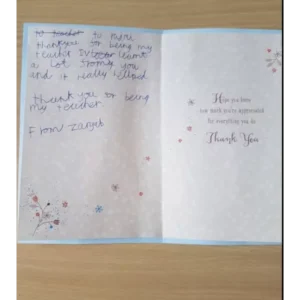 to Marie
thankyou for being my
teacher I learnt
a lot from you
and it really helped
thank you for being
my teacher.
From Zarget
Hope you know
how much you're appreciated
for everything you do
Thank You